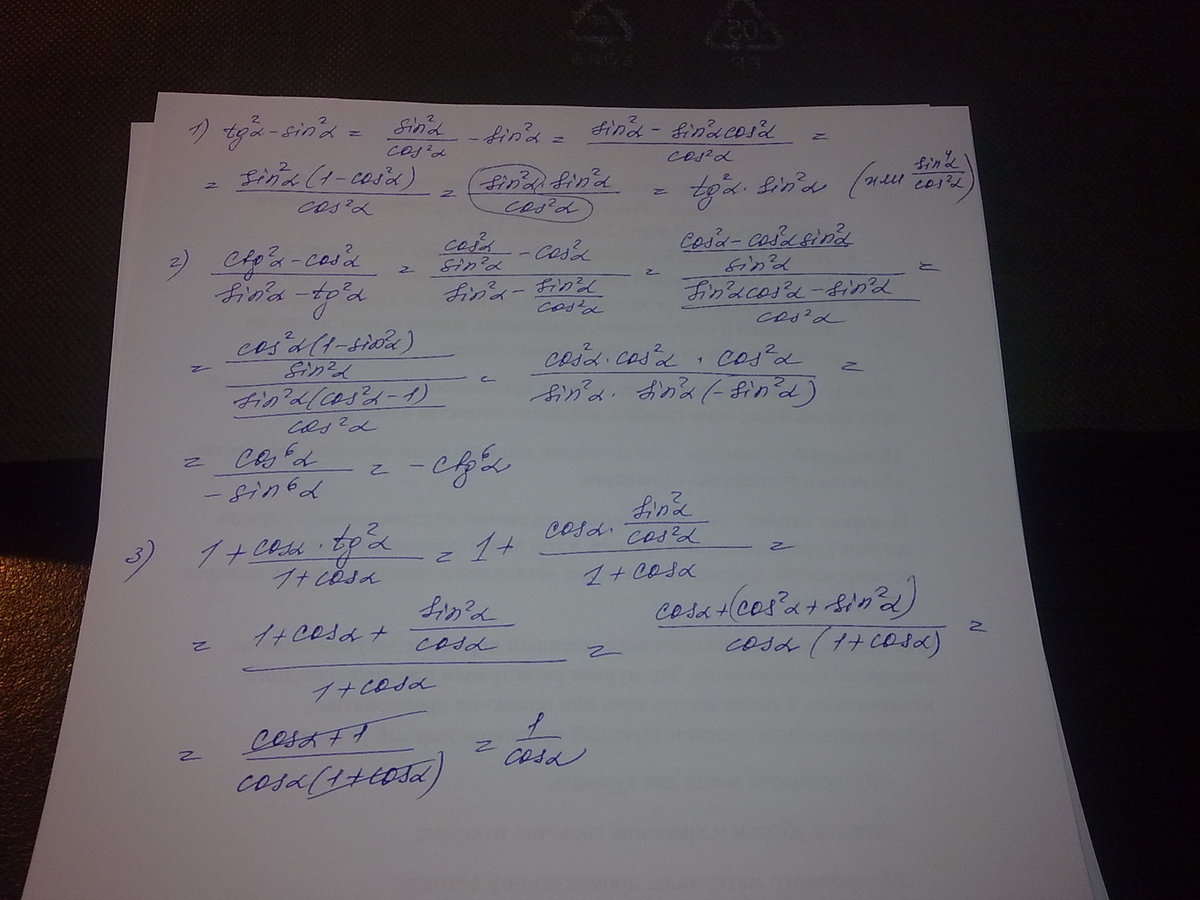 1) tg²α - sin²α = sin²α/cos²α - sin²α = (sin²α - sin²α cos²α)/cos²α =
= sin²α(1 - cos²α)/cos²α = sin²α · sin²α/cos²α = tg²α · sin²α (или sin⁴α/cos²α)
2) (ctg²α - cos²α)/(sin²α - tg²α) = (cos²α/sin²α - cos²α)/(sin²α - sin²α/cos²α) = ((cos²α - cos²α sin²α)/sin²α)/((sin²α cos²α - sin²α)/cos²α) =
= (cos²α(1 - sin²α)/sin²α)/(sin²α(cos²α - 1)/cos²α) = (cos²α · cos²α · cos²α)/(sin²α · sin²α(-sin²α)) =
= cos⁶α/-sin⁶α = -ctg⁶α
3) 1 + (cosα · tg²α)/(1 + cosα) = 1 + (cosα · sin²α/cos²α)/(1 + cosα) =
= (1 + cosα + sin²α/cosα)/(1 + cosα) = (cosα + (cos²α + sin²α))/(cosα(1 + cosα)) =
= (cosα + 1)/(cosα(1 + cosα)) = 1/cosα